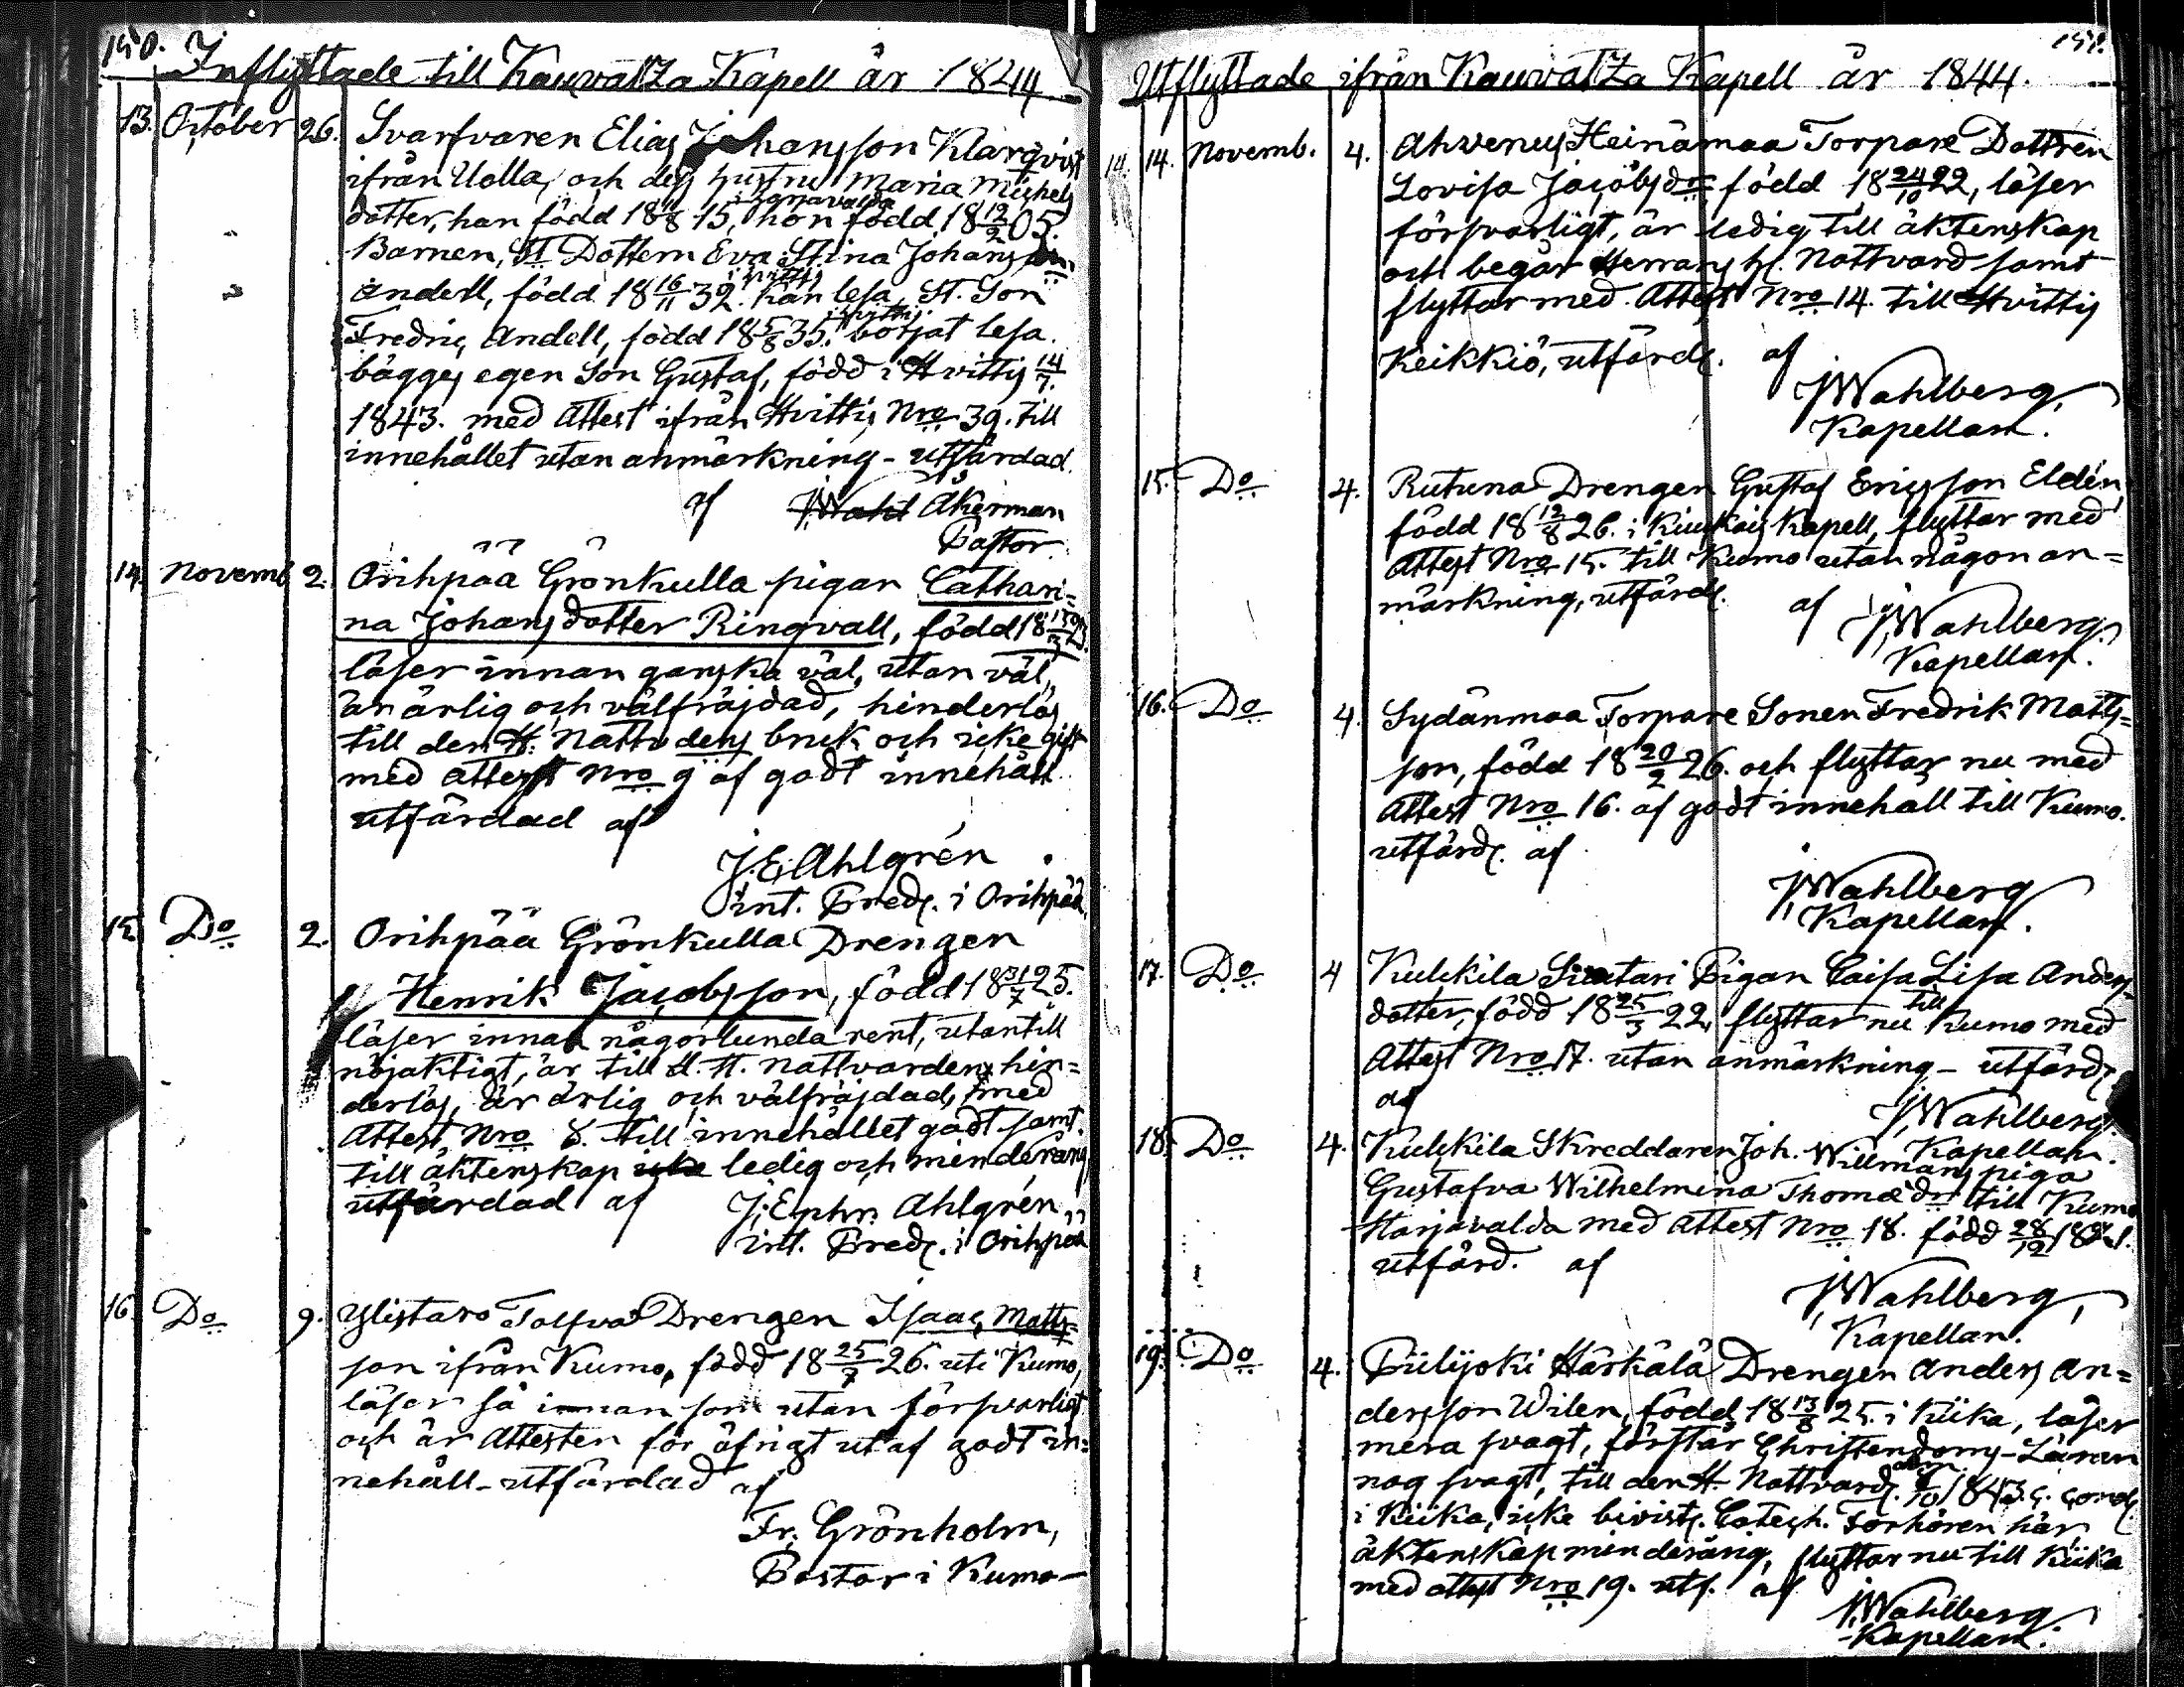 150. Inflyttade till Kauvatza Kapell år 1844
13. October 26. Svarfvaren Elias Johansson Klarqvist
ifrån Uolla, och dess hustru Maria Michels
i Harjavalda
dotter, han född 18 11/8 15, hon född 18 12/2 05.
Barnen, St. Dottern Eva Stina Johansdr
i Hvittis
Andell, född 18 16/11 32. kan lesa, St. Son
i Hvittis
Fredric Andell, född 18 5/8 35. börjat lesa.
bägges egen Son Gustaf, född i Hvittis 14/7.
1843. med Attest ifrån Hvittis Nro 39. till
innehållet utan anmärkning - utfärdad
af Åkerman
Pastor.
14. Novemb. 2. Orihpää Grönkulla pigan Cathari=
na Johansdotter Ringvall, född 18 13/3 23.
läser innan ganska väl, utan väl,
är ärlig och välfräjdad, hinderlös
till den H. Nattvdens bruk och icke gift
med Attest Nro 9 af godt innehåll
utfärdad af
J. E. Ahlgrén
int. Pred. i Orihpää.
15. Do 2. Orihpää Grönkulla Drengen
Henrik Jacobsson, född 18 31/7 25.
läser innan någorlunda rent, utantill
nöjaktigt, är till H. H. Nattvarden hin=
derlös, är ärlig och välfräjdad, med
Attest Nro 8. till innehållet godt samt
till äktenskap icke ledig och minderårig
utfärdad af J. Ephr. Ahlgrén
int. Pred. i Orihpää
16. Do 9. Ylistaro Tolfvar Drengen Isaac Matts=
son ifrån Kumo, född 18 25/7 26. uti Kumo,
läser så innan som utan försvarligt
och är Attesten för öfrigt utaf godt in=
nehåll - utfärdad af
Fr. Grönholm,
Pastor i Kumo -
151.
Utflyttade ifrån Kauvatza Kapell år 1844.
14. 14. Novemb. 4. Ahvenus Heinämaa Torpare Dottren
Lovisa Jacobsdr född 18 24/10 22, läser
försvarligt, är ledig till äktenskap
och begår Herrans H. Nattvard samt
flyttar med Attest Nro 14. till Hvittis
Keikkiö, utfärd. af
J Wahlberg,
Kapellan.
15. Do 4. Rutuna Drengen Gustaf Ericsson Eldén
född 18 12/8 26. i Kiuckais Kapell, flyttar med
Attest Nro 15. till Kumo utan någon an=
märkning, utfärd. af
J Wahlberg.
Kapellan.
16. Do 4. Sydänmaa Torpare Sonen Fredrik Matts=
son, född 18 20/2 26. och flyttar nu med
Attest Nro 16. af godt innehåll till Kumo.
utfärd. af
J Wahlberg
Kapellan.
17. Do 4 Kulckila Siutari Pigan Caisa Lisa Anders
till
dotter, född 18 25/3 22, flyttar nu Kumo med
Attest Nro 17. utan anmärkning - utfärd.
af
J Wahlberg.
Kapellan.
18. Do 4. Kulckila Skreddaren Joh. Willmans piga
Gustafva Wilhelmina Thomædr till Kumo
Harjavalda med Attest Nro 18. född 28/12 1821.
utfärd. af
J Wahlberg,
Kapellan.
19. Do 4. Piilijoki Härkälä Drengen Anders An=
dersson Wilen, född 18 13/8 25. i Kiika, läser
mera svagt, förstår Christendoms-Läran
nog svagt, till den H. Nattvard. adm. /10 1843.
i Kiika, icke bivist. Catech. Förhören här
äktenskap minderårig, flyttar nu till Kiika
med attest Nro 19. utf. af
J Wahlberg.
Kapellan.